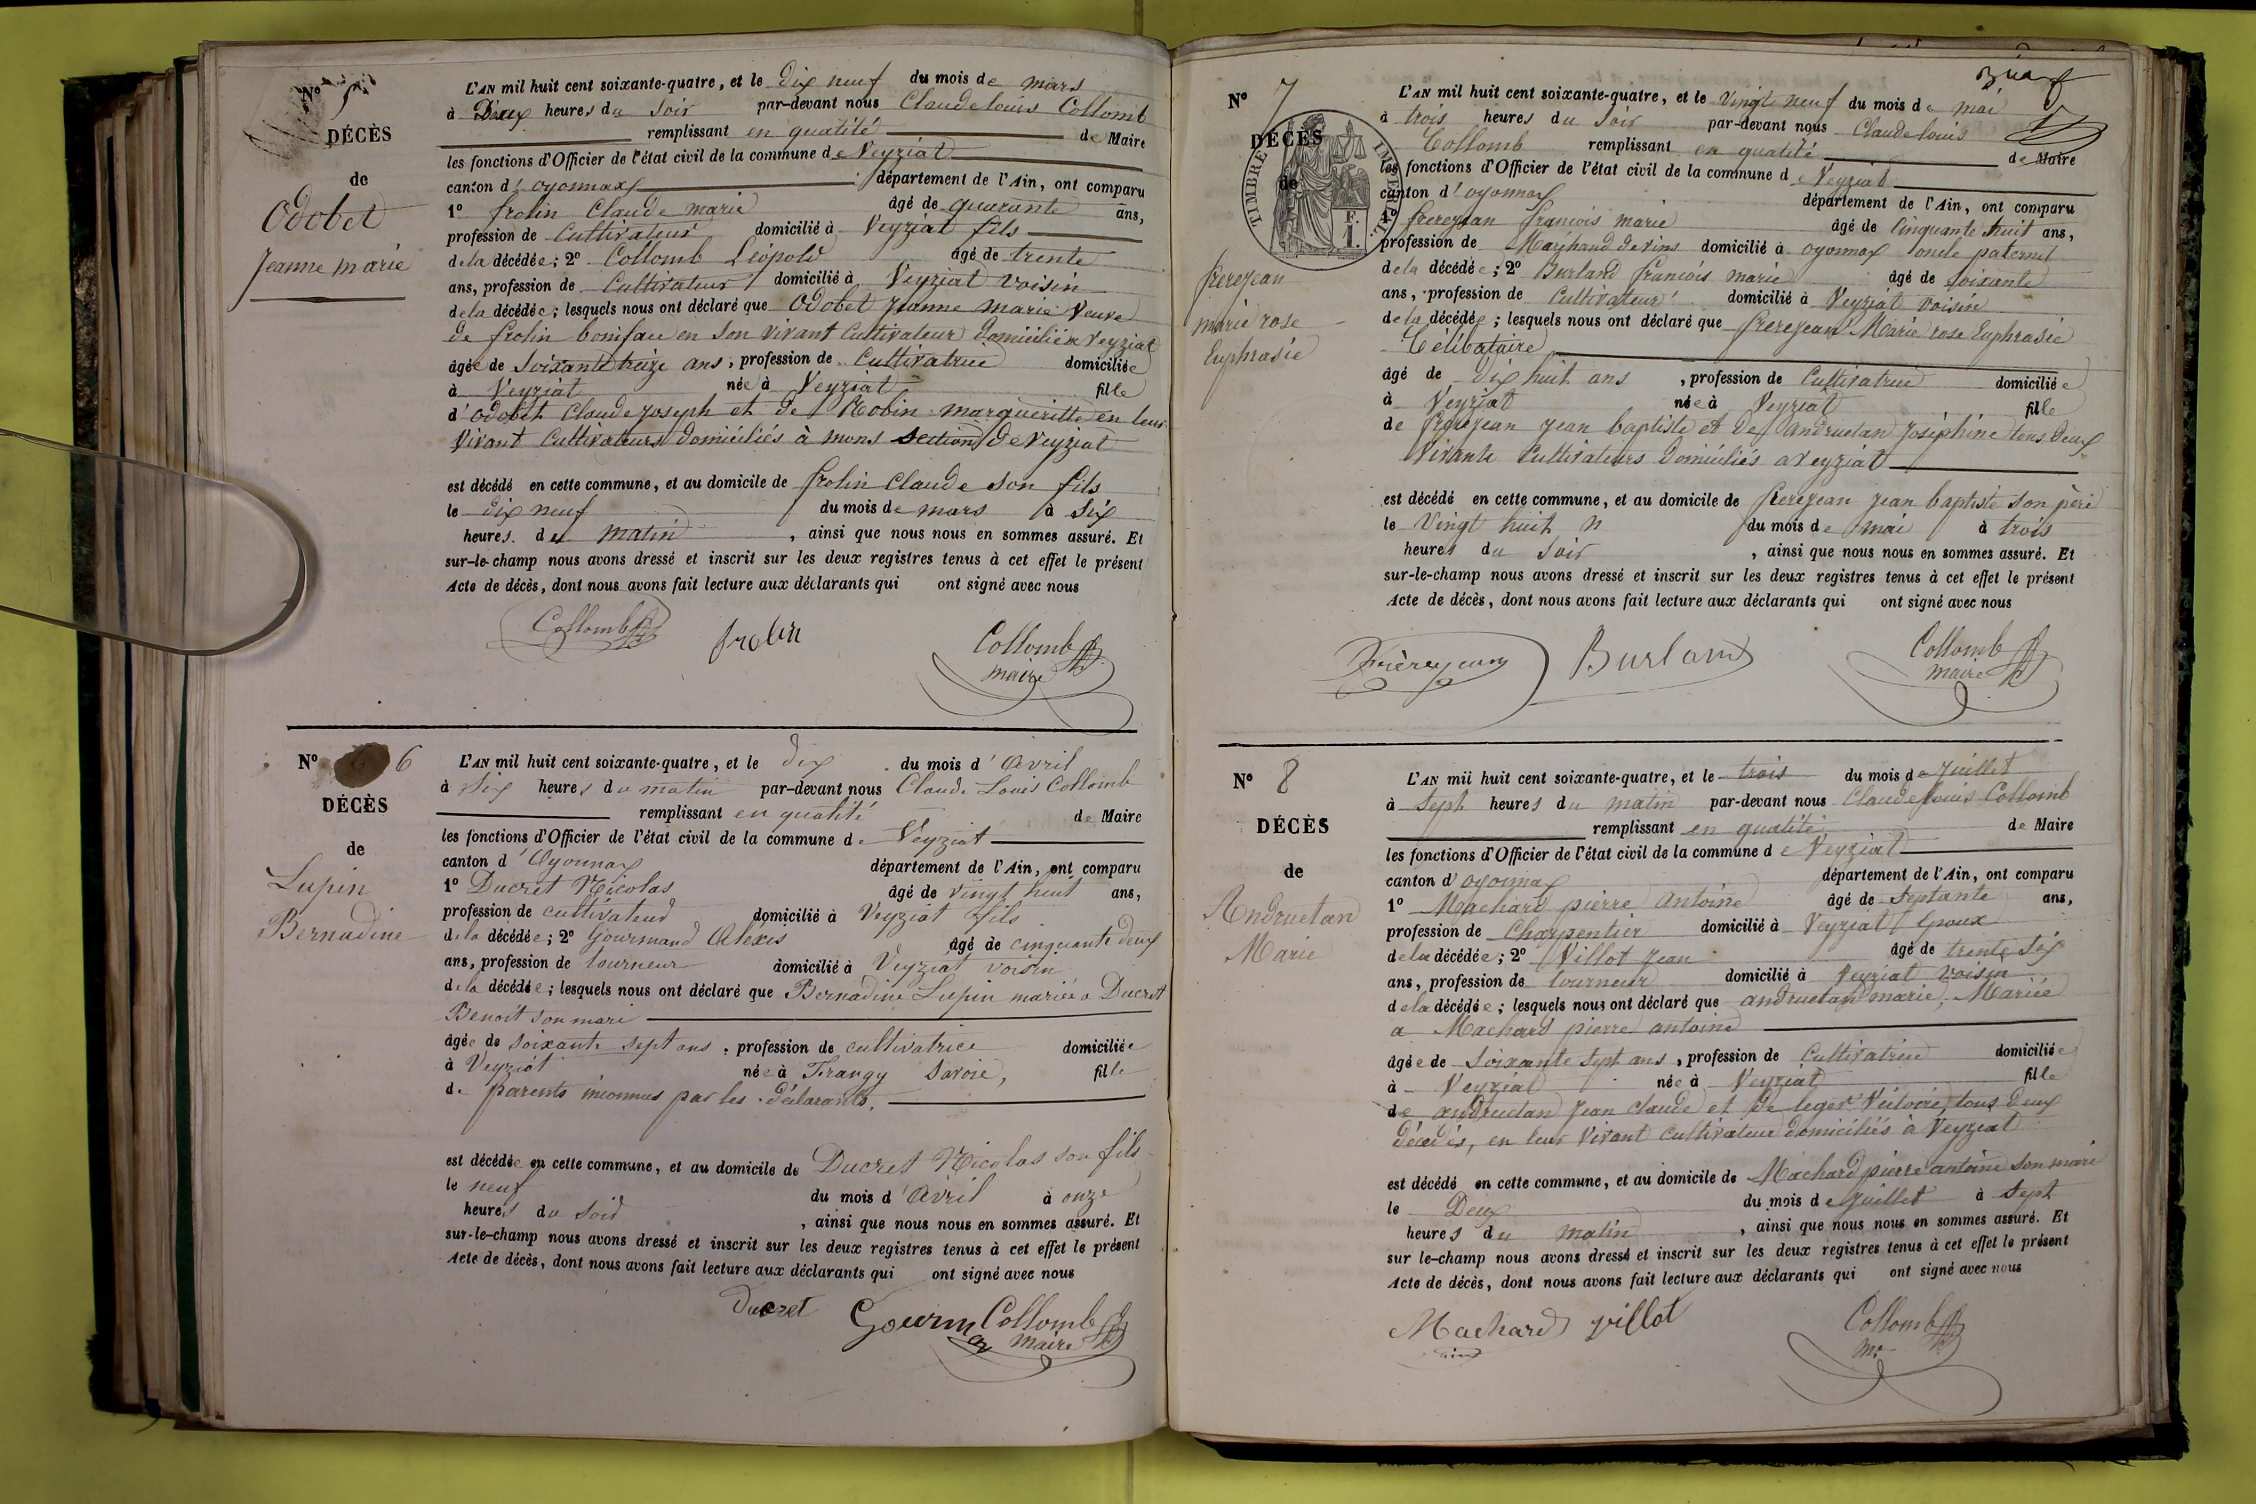 N° 5
DÉCÈS
de
Odobet
Jeanne marie
L'AN mil huit cent soixante-quatre, et le dix neuf du mois de mars
à Deux heures du soir par-devant nous Claude louis Collomb
remplissant en qualité de Maire
les fonctions d'Officier de l'état civil de la commune de Veyziat
canton d'oyonnax département de l'Ain, ont comparu
1° frolin Claude marie âgé de quarante ans,
profession de Cultivateur domicilié à Veyziat fils
de la décédée; 2° Collomb Léopold âgé de trente
ans, profession de Cultivateur domicilié à Veyziat voisin
de la décédée; lesquels nous ont déclaré que Odobet Jeanne marie Veuve
de frolin boniface en son vivant Cultivateur domicilié a Veyziat
âgée de soixante treize ans, profession de Cultivatrice domiciliée
à Veyziat née à Veyziat fille
d'odobet Claude joseph et de Robin margueritte en leur
vivant Cultivateurs domiciliés à mons section de veyziat
est décédé en cette commune, et au domicile de frolin Claude son fils
le dix neuf du mois de mars à six
heures du matin, ainsi que nous nous en sommes assuré. Et
sur-le-champ nous avons dressé et inscrit sur les deux registres tenus à cet effet le présent
Acte de décès, dont nous avons fait lecture aux déclarants qui ont signé avec nous
Collomb frolin Collomb
maire
N° 6
DÉCÈS
de
Lupin
Bernadine
L'AN mil huit cent soixante-quatre, et le dix du mois d'Avril
à six heures du matin par-devant nous Claude Louis Collomb
remplissant en qualité de Maire
les fonctions d'Officier de l'état civil de la commune de Veyziat
canton d'Oyonnax département de l'Ain, ont comparu
1° Ducret Nicolas âgé de vingt huit ans,
profession de cultivateur domicilié à Veyziat fils
de la décédée; 2° Gourmand Alexis âgé de cinquante deux
ans, profession de tourneur domicilié à Veyziat voisin
de la décédée; lesquels nous ont déclaré que Bernadine Lupin mariée a Ducret
Benoit son mari
âgée de soixante sept ans, profession de cultivatrice domiciliée
à Veyziat née à Frangy Savoie, fille
de parents inconnus par les déclarants.
est décédée en cette commune, et au domicile de Ducret Nicolas son fils
le neuf du mois d'Avril à onze
heures du soir, ainsi que nous nous en sommes assuré. Et
sur-le-champ nous avons dressé et inscrit sur les deux registres tenus à cet effet le présent
Acte de décès, dont nous avons fait lecture aux déclarants qui ont signé avec nous
Ducret Gourm Collomb
maire
N° 7
DÉCÈS
de
TIMBRE IMPERIAL
frerejean
marie rose
Euphrasie
L'AN mil huit cent soixante-quatre, et le Vingt neuf du mois de mai
à trois heures du soir par-devant nous Claude louis
Collomb remplissant en qualité de Maire
les fonctions d'Officier de l'état civil de la commune de Veyziat
canton d'oyonnax département de l'Ain, ont comparu
1° frerejean francois marie âgé de Cinquante huit ans,
profession de Marchand de vins domicilié à oyonnax loncle paternel
de la décédée; 2° Burland francois marie âgé de soixante
ans, profession de Cultivateur domicilié à Veyziat voisin
de la décédée; lesquels nous ont déclaré que frerejean Marie rose Euphrasie
Célibataire
âgé de dix huit ans, profession de Cultivatrice domiciliée
à Veyziat née à Veyziat fille
de frerejean jean baptiste et de Andruetan joséphine tous deux
Vivants Cultivateurs domiciliés a veyziat
est décédé en cette commune, et au domicile de frerejean jean baptiste son père
le Vingt huit du mois de mai à trois
heures du soir, ainsi que nous nous en sommes assuré. Et
sur-le-champ nous avons dressé et inscrit sur les deux registres tenus à cet effet le présent
Acte de décès, dont nous avons fait lecture aux déclarants qui ont signé avec nous
frèrejean Burland Collomb
maire
N° 8
DÉCÈS
de
Andruetan
Marie
L'AN mil huit cent soixante-quatre, et le trois du mois de Juillet
à sept heures du matin par-devant nous Claude louis Collomb
remplissant en qualité de Maire
les fonctions d'Officier de l'état civil de la commune de Veyziat
canton d'oyonnax département de l'Ain, ont comparu
1° Machard pierre Antoine âgé de septante ans,
profession de Charpentier domicilié à Veyziat Epoux
de la décédée; 2° Villot jean âgé de trente six
ans, profession de tourneur domicilié à Veyziat voisin
de la décédée; lesquels nous ont déclaré que andruetan marie, Mariée
a Machard pierre antoine
âgée de soixante sept ans, profession de Cultivatrice domiciliée
à Veyziat née à Veyziat fille
de andruetan jean claude et de leger Victoire, tous deux
décédés, en leur vivant cultivateur domiciliés à Veyziat
est décédé en cette commune, et au domicile de Machard pierre antoine son mari
le Deux du mois de juillet à sept
heures du matin, ainsi que nous nous en sommes assuré. Et
sur le-champ nous avons dressé et inscrit sur les deux registres tenus à cet effet le présent
Acte de décès, dont nous avons fait lecture aux déclarants qui ont signé avec nous
Machard villot Collomb